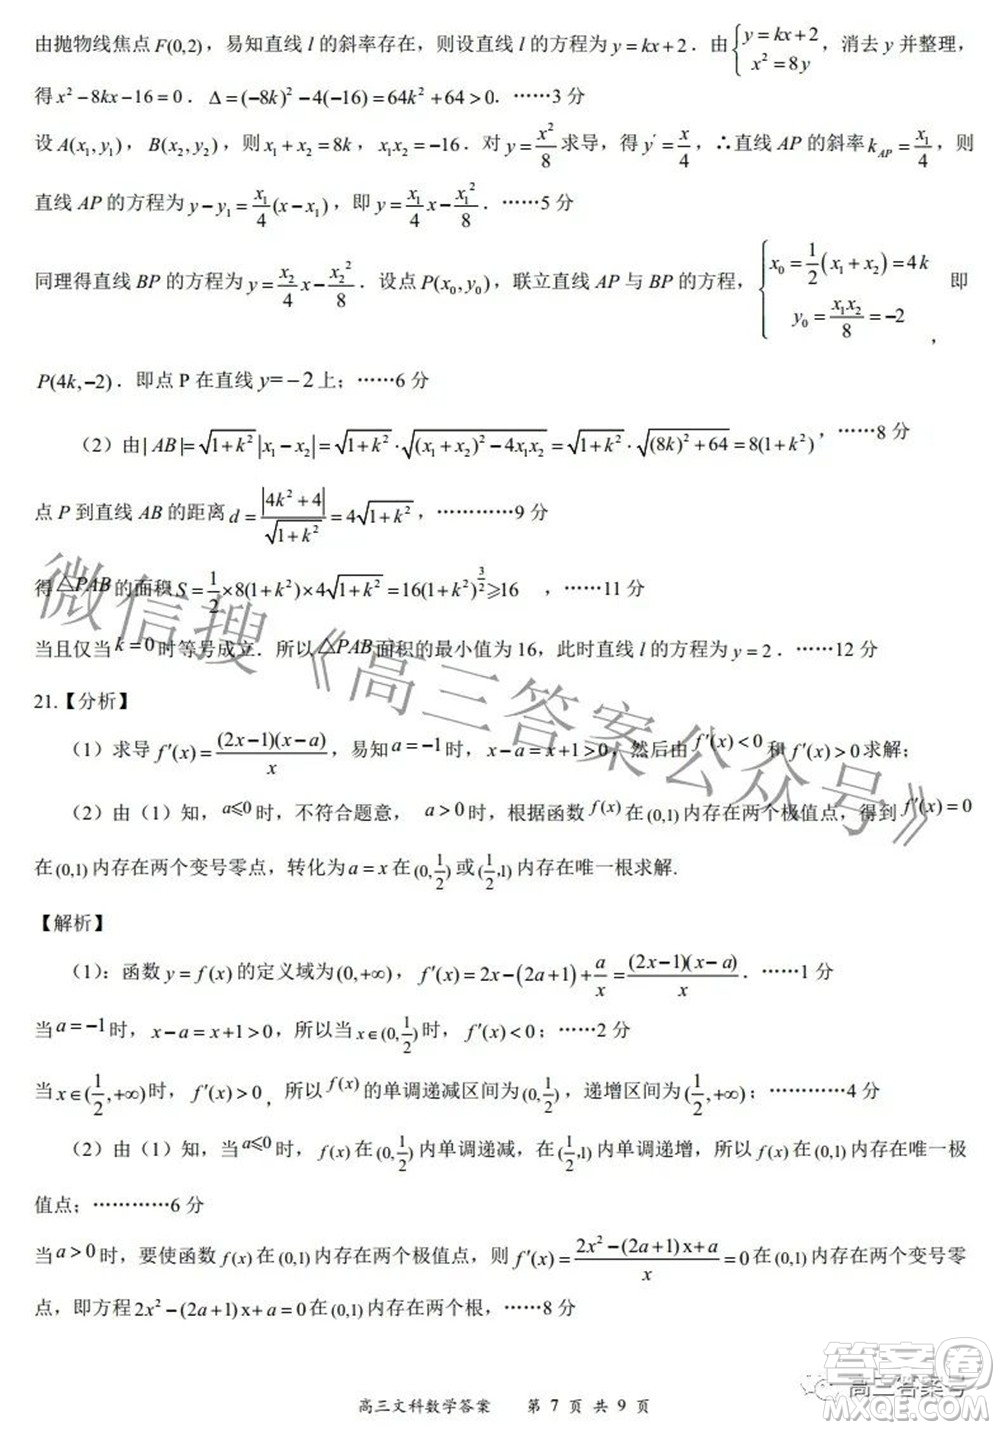 由抛物线焦点 F(0,2)，易知直线 l 的斜率存在，则设直线 l 的方程为 y=kx+2．由{y=kx+2 x²=8y，消去 y 并整理，
得 x²−8kx−16=0．Δ=(−8k)²−4(−16)=64k²+64>0．……3 分
设 A(x₁,y₁)，B(x₂,y₂)，则 x₁+x₂=8k，x₁x₂=−16．对 y=x²/8 求导，得 y′=x/4，∴直线 AP 的斜率 k_AP=x₁/4，则
直线 AP 的方程为 y−y₁=x₁/4(x−x₁)，即 y=x₁/4 x−x₁²/8．……5 分
同理得直线 BP 的方程为 y=x₂/4 x−x₂²/8．设点 P(x₀,y₀)，联立直线 AP 与 BP 的方程，{x₀=1/2(x₁+x₂)=4k y₀=x₁x₂/8=−2，即
P(4k,−2)．即点 P 在直线 y=−2 上；……6 分
（2）由|AB|=√(1+k²)|x₁−x₂|=√(1+k²)·√((x₁+x₂)²−4x₁x₂)=√(1+k²)·√((8k)²+64)=8(1+k²)，……8 分
点 P 到直线 AB 的距离 d=|4k²+4|/√(1+k²)=4√(1+k²)，…………9 分
得△PAB的面积 S=1/2×8(1+k²)×4√(1+k²)=16(1+k²)^(3/2)⩾16 ，……11 分
当且仅当 k=0 时等号成立．所以△PAB面积的最小值为 16，此时直线 l 的方程为 y=2．……12 分
21.【分析】
（1）求导 f′(x)=(2x−1)(x−a)/x，易知 a=−1 时，x−a=x+1>0，然后由 f′(x)<0 和 f′(x)>0 求解；
（2）由（1）知，a⩽0 时，不符合题意， a>0 时，根据函数 f(x) 在 (0,1) 内存在两个极值点，得到 f′(x)=0
在 (0,1) 内存在两个变号零点，转化为 a=x 在 (0,1/2) 或 (1/2,1) 内存在唯一根求解.
【解析】
（1）：函数 y=f(x) 的定义域为 (0,+∞)，f′(x)=2x−(2a+1)+a/x=(2x−1)(x−a)/x．……1 分
当 a=−1 时，x−a=x+1>0，所以当 x∈(0,1/2) 时，f′(x)<0；……2 分
当 x∈(1/2,+∞) 时，f′(x)>0，所以 f(x) 的单调递减区间为 (0,1/2)，递增区间为 (1/2,+∞)；…………4 分
（2）由（1）知，当 a⩽0 时，f(x) 在 (0,1/2) 内单调递减，在 (1/2,1) 内单调递增，所以 f(x) 在 (0,1) 内存在唯一极
值点；…………6 分
当 a>0 时，要使函数 f(x) 在 (0,1) 内存在两个极值点，则 f′(x)=2x²−(2a+1)x+a/x=0 在 (0,1) 内存在两个变号零
点，即方程 2x²−(2a+1)x+a=0 在 (0,1) 内存在两个根，……8 分
高三文科数学答案 第 7 页 共 9 页
微信搜《高三答案公众号》
高三答案号
答案圈
MXQE.COM